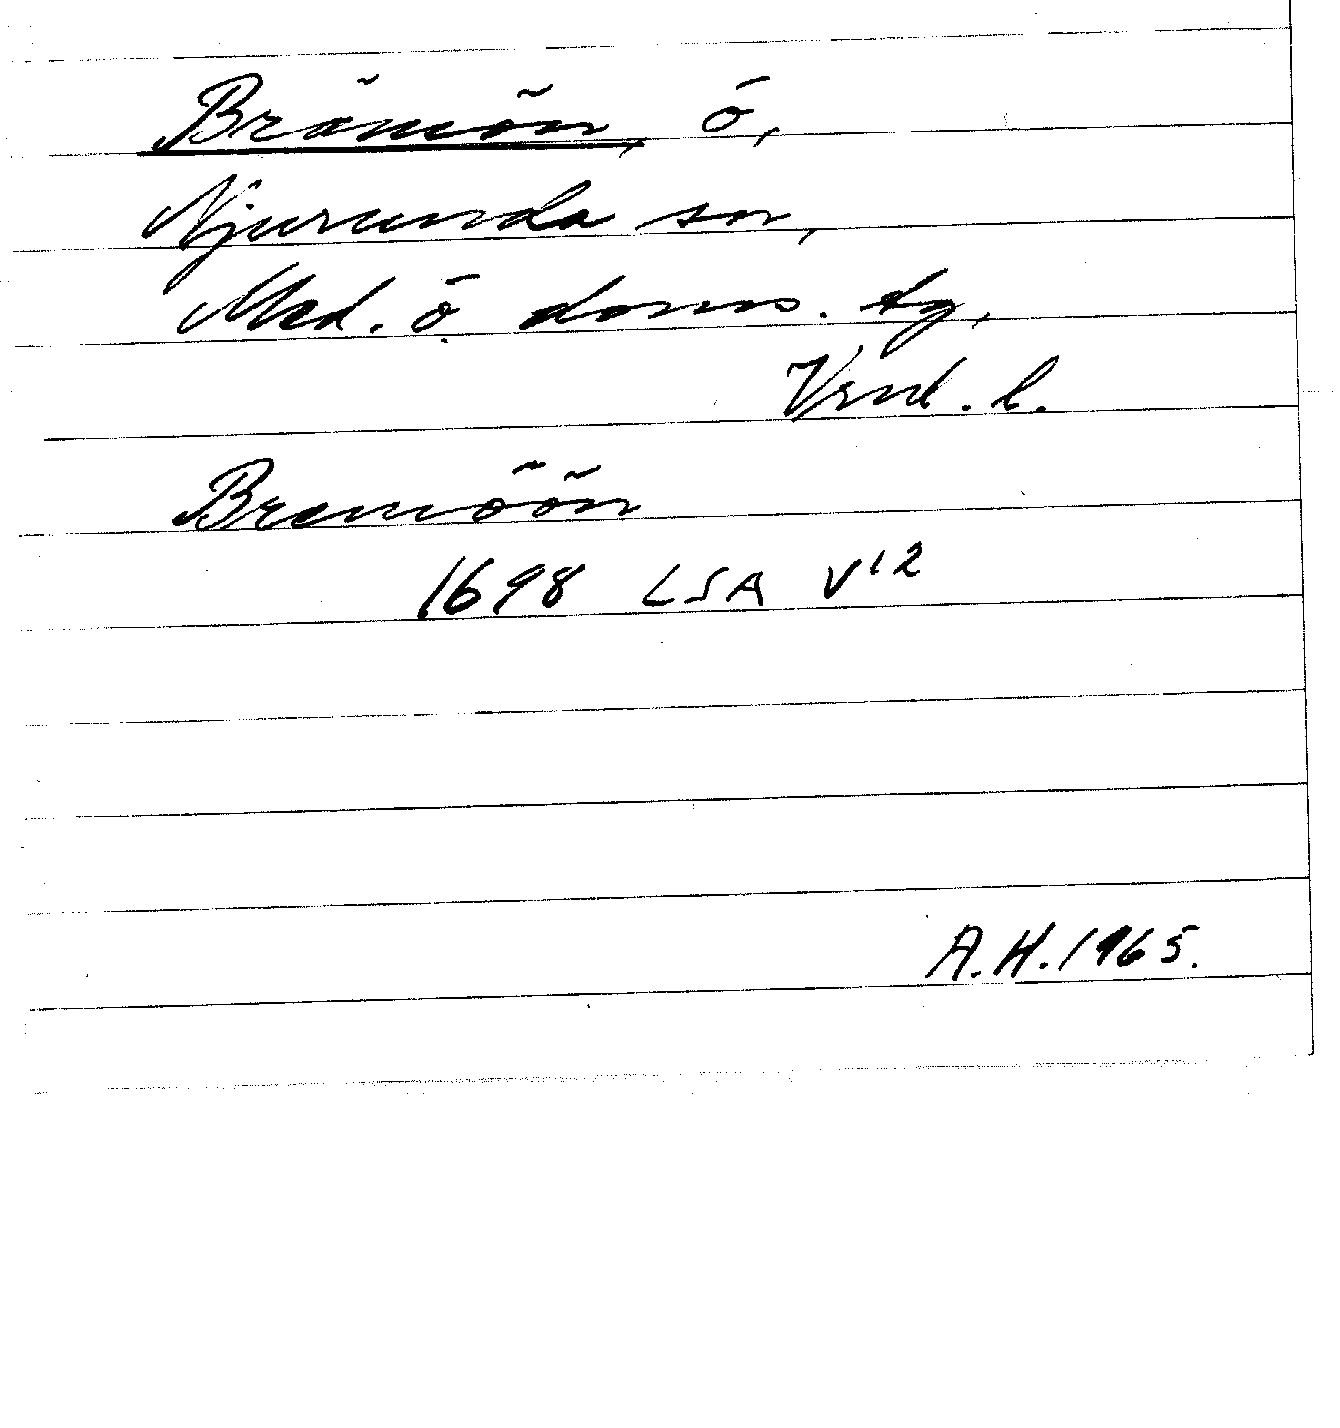 Brämön, ö,
Njurunda sn,
Med. ö. doms. tg,
Vrnl. l.
Bremöön
1698 LSA V12
A.H. 1965.